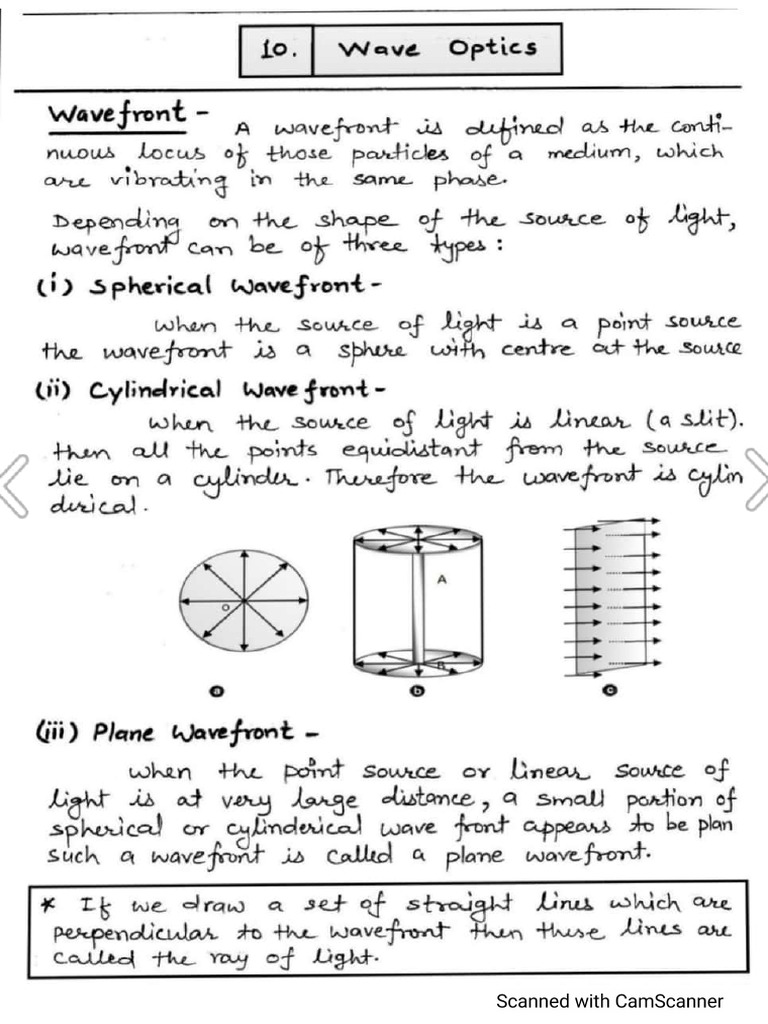 10. Wave Optics
Wavefront -
A wavefront is defined as the conti-
nuous locus of those particles of a medium, which
are vibrating in the same phase.
Depending on the shape of the source of light,
wavefront can be of three types :
(i) Spherical Wavefront -
When the source of light is a point source
the wavefront is a sphere with centre at the source
(ii) Cylindrical Wavefront -
When the source of light is linear (a slit).
then all the points equidistant from the source
lie on a cylinder. Therefore the wavefront is cylin
derical.
O
A
B
a
b
c
(iii) Plane Wavefront -
When the point source or linear source of
light is at very large distance, a small portion of
spherical or cylinderical wave front appears to be plan
such a wavefront is called a plane wavefront.
* If we draw a set of straight lines which are
perpendicular to the wavefront then these lines are
called the ray of light.
Scanned with CamScanner